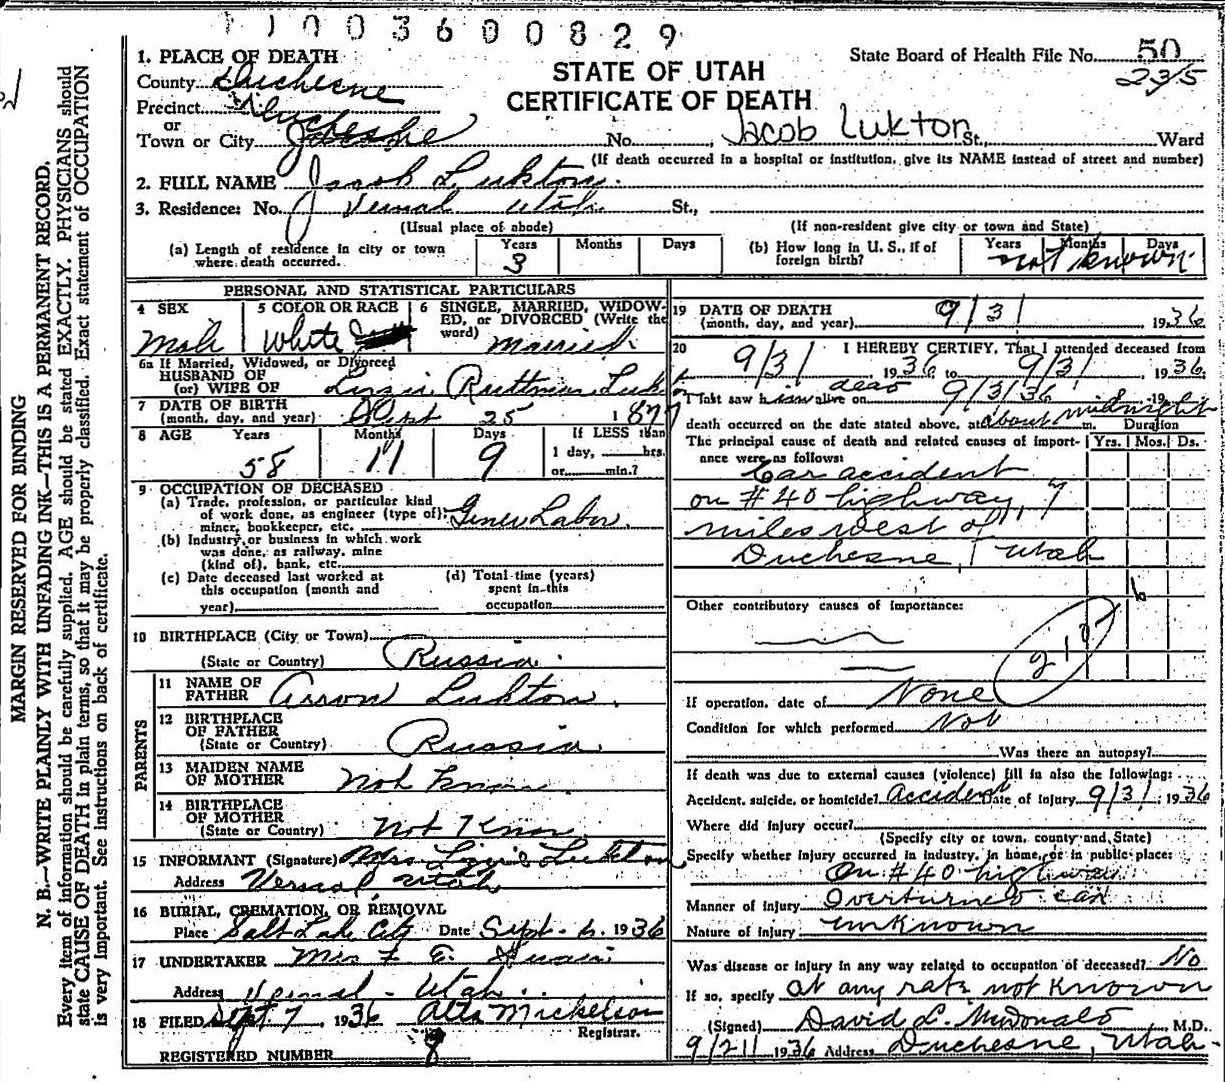 1003600829
State Board of Health File No. 50
2315
STATE OF UTAH
CERTIFICATE OF DEATH
1. PLACE OF DEATH
County Duchesne
Precinct Duchesne
or
Town or City No. Jacob Lukton St., Ward
(If death occurred in a hospital or institution, give its NAME instead of street and number)
2. FULL NAME Jacob Lukton.
3. Residence: No. Vernal Utah St.,
(Usual place of abode) (If non-resident give city or town and State)
(a) Length of residence in city or town where death occurred. Years 3 Months Days
(b) How long in U. S., if of foreign birth? Years Months Days not known
PERSONAL AND STATISTICAL PARTICULARS
4 SEX Male
5 COLOR OR RACE White
6 SINGLE, MARRIED, WIDOWED, or DIVORCED (Write the word) Married.
6a If Married, Widowed, or Divorced
HUSBAND OF
(or) WIFE OF Lizzie Ruttman Lukton
7 DATE OF BIRTH
(month, day, and year) Sept 25 1877
8 AGE Years 58 Months 11 Days 9 If LESS than 1 day, hrs. or min.?
9 OCCUPATION OF DECEASED
(a) Trade, profession, or particular kind of work done, as engineer (type of); miner, bookkeeper, etc. Gener Labor.
(b) Industry or business in which work was done, as railway, mine (kind of), bank, etc.
(c) Date deceased last worked at this occupation (month and year)
(d) Total time (years) spent in this occupation
10 BIRTHPLACE (City or Town)
(State or Country) Russia.
PARENTS
11 NAME OF FATHER Arron Lukton.
12 BIRTHPLACE OF FATHER
(State or Country) Russia.
13 MAIDEN NAME OF MOTHER Not Know
14 BIRTHPLACE OF MOTHER
(State or Country) Not Know
15 INFORMANT (Signature) Mrs Lizzie Lukton
Address Vernal, Utah
16 BURIAL, CREMATION, OR REMOVAL
Place Salt Lake City Date Sept. 6, 1936
17 UNDERTAKER Mrs F. E. Swain
Address Vernal - Utah.
18 FILED Sept. 7, 1936 Alta Mickelson
Registrar.
REGISTERED NUMBER 8
19 DATE OF DEATH
(month, day, and year) 9/3/ 1936
20 I HEREBY CERTIFY, That I attended deceased from
9/3/ 1936, to 9/3/, 1936.
I last saw him alive on dead 9/3/36, 19
death occurred on the date stated above, at about midnight m. Duration
The principal cause of death and related causes of importance were as follows: Yrs. Mos. Ds.
Car accident
on #40 highway, 7
miles west of
Duchesne, Utah
Other contributory causes of importance:
210
If operation, date of None
Condition for which performed Not
Was there an autopsy?
If death was due to external causes (violence) fill in also the following:
Accident, suicide, or homicide? Accident Date of injury 9/3/, 1936
Where did injury occur?
(Specify city or town, county and State)
Specify whether injury occurred in industry, in home, or in public place:
On #40 highway
Manner of injury Overturned car
Nature of injury unknown
Was disease or injury in any way related to occupation of deceased? No
If so, specify at any rate not known
(Signed) David L. McDonald, M.D.
9/21/ 1936 Address Duchesne, Utah-
MARGIN RESERVED FOR BINDING
N. B.—WRITE PLAINLY WITH UNFADING INK—THIS IS A PERMANENT RECORD.
Every item of information should be carefully supplied. AGE should be stated EXACTLY. PHYSICIANS should
state CAUSE OF DEATH in plain terms, so that it may be properly classified. Exact statement of OCCUPATION
is very important. See instructions on back of certificate.